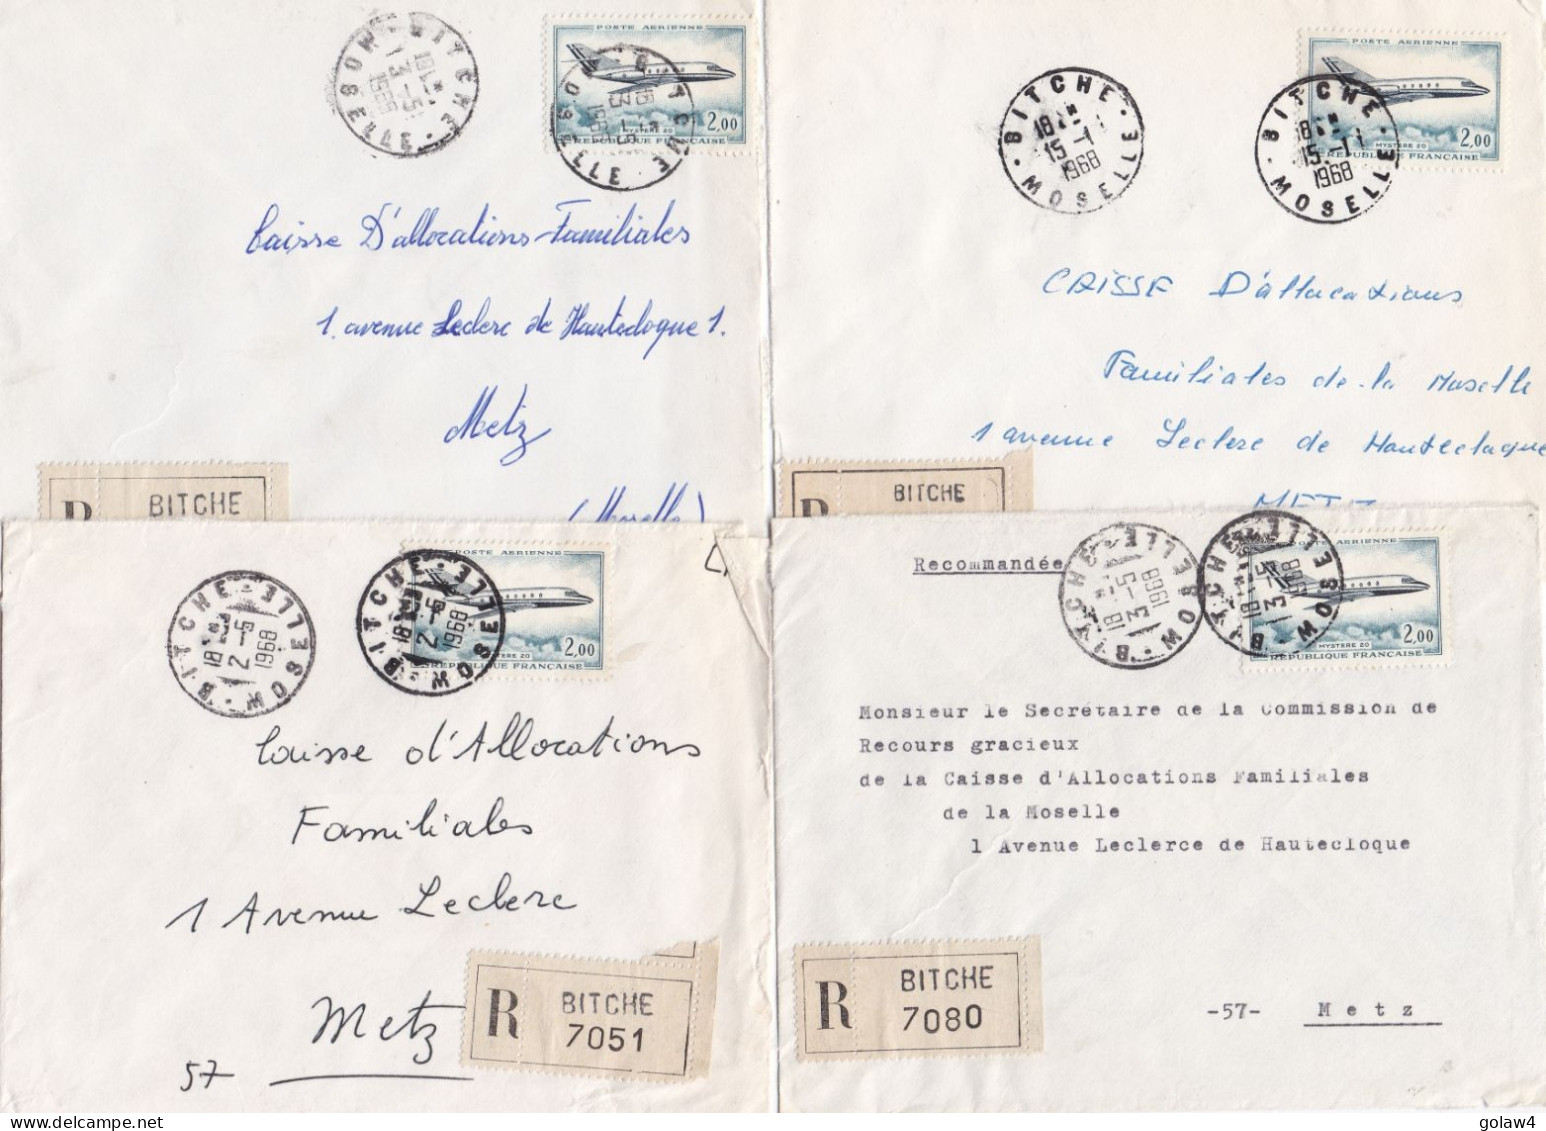 BITCHE MOSELLE
18H
3 -5
1968
POSTE AERIENNE
MYSTERE 20
2,00
REPUBLIQUE FRANÇAISE
BITCHE MOSELLE
18H
3 -5
1968
Caisse D'allocations-Familiales
1. avenue Leclerc de Hautecloque 1.
Metz
(Moselle)
R BITCHE
BITCHE MOSELLE
18H
15 -1
1968
POSTE AERIENNE
MYSTERE 20
2,00
REPUBLIQUE FRANÇAISE
BITCHE MOSELLE
18H
15 -1
1968
CAISSE D'allocations
Familiales de la Moselle
1 avenue Leclerc de Hauteclaque
METZ
R BITCHE
BITCHE MOSELLE
18H
2 -5
1968
POSTE AERIENNE
MYSTERE 20
2,00
REPUBLIQUE FRANÇAISE
BITCHE MOSELLE
18H
2 -5
1968
Caisse d'Allocations
Familiales
1 Avenue Leclerc
Metz
57
R BITCHE
7051
Recommandée
BITCHE MOSELLE
18H
3 -5
1968
POSTE AERIENNE
MYSTERE 20
2,00
REPUBLIQUE FRANÇAISE
BITCHE MOSELLE
18H
3 -5
1968
Monsieur le Secrétaire de la Commission de
Recours gracieux
de la Caisse d'Allocations Familiales
de la Moselle
1 Avenue Leclerce de Hautecloque
-57- Metz
R BITCHE
7080
golaw4